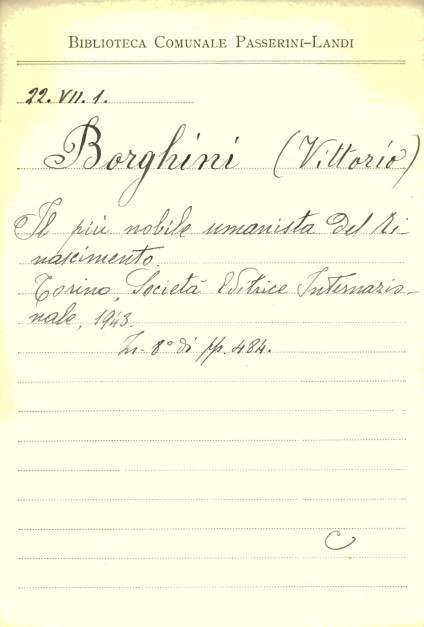 BIBLIOTECA COMUNALE PASSERINI-LANDI
22. VII. 1.
Borghini (Vittorio)
Il più nobile umanista del ri-
nascimento.
Torino, Società Editrice Internazio-
nale, 1943.
In-8° di pp. 484.
C